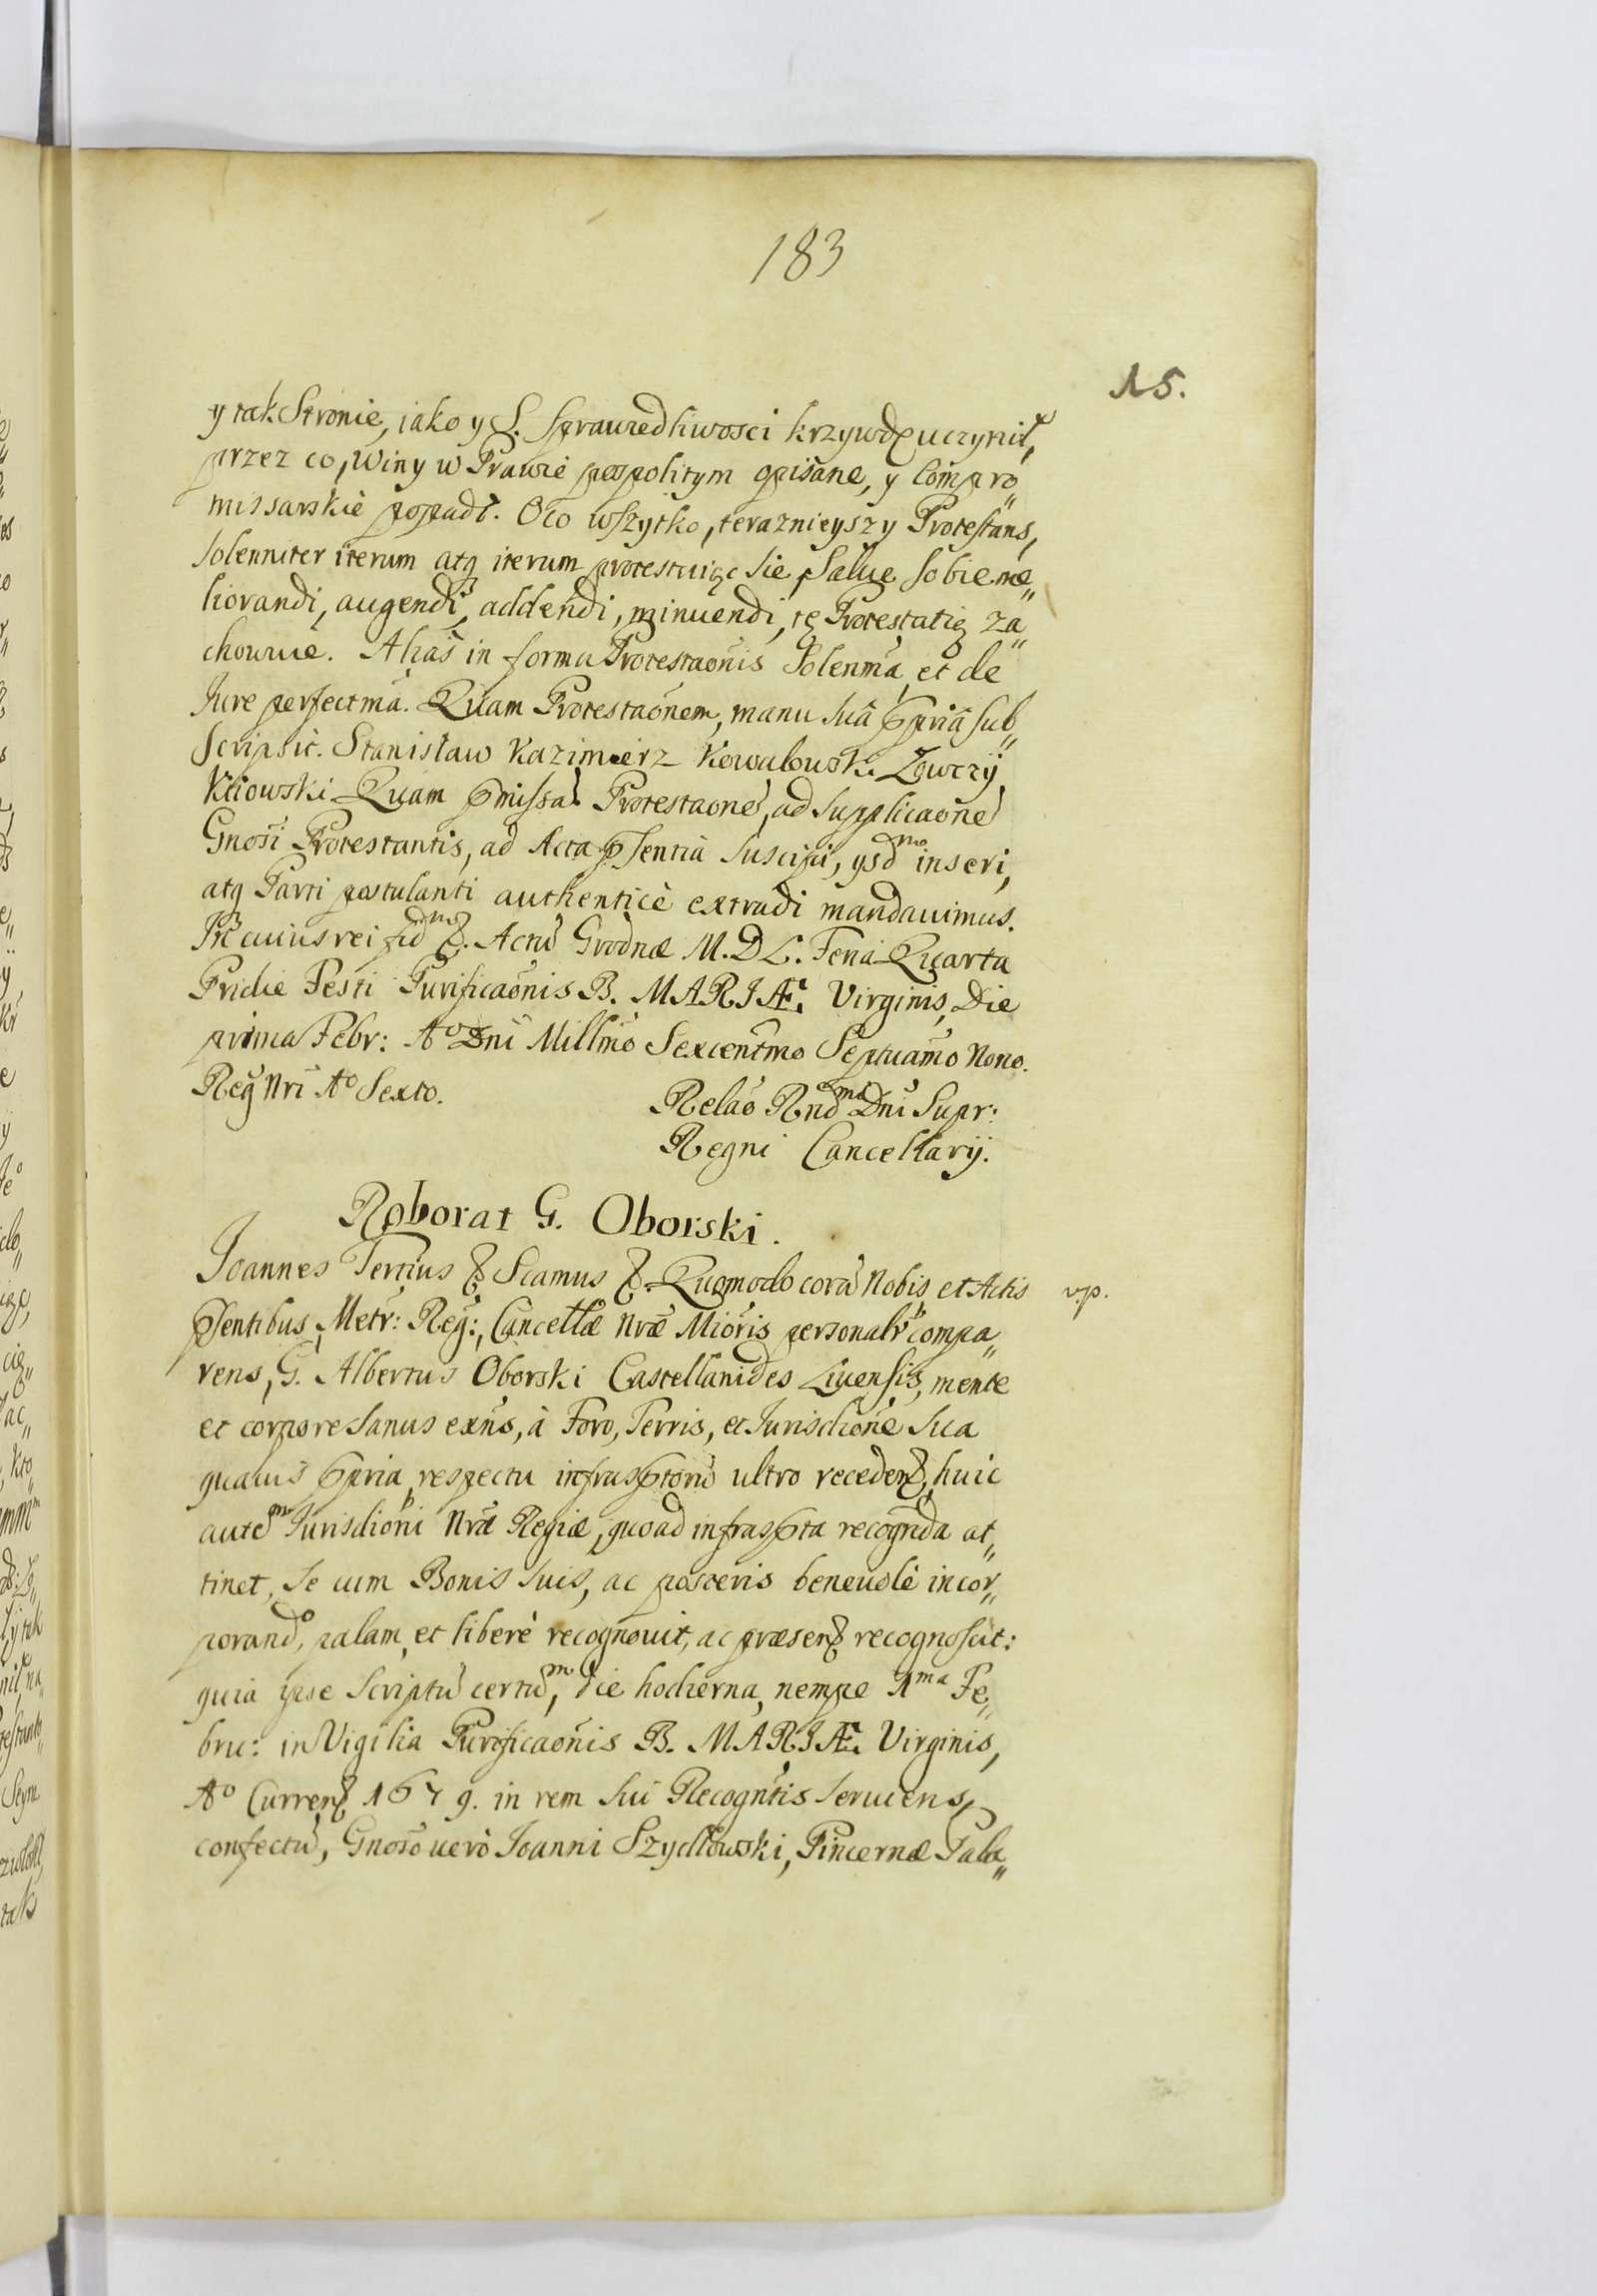 183
15.
y tak Stronie, iako y S. Sprawiedliwosci krzywdę uczynił,
przez co, Winy w Prawie pospolitym opisane, y Compro„
missarskie popadł. Oco wszytko, terazniejszy Protestans,
Solenniter iterum atq iterum protestuiąc Sie, Salvę Sobie me„
liorandi, augendi, addendi, minuendi, tę Protestatią za„
chowuie. Alias in forma Protestaõnis Solenma, et de
Jure perfectmã. Quam Protestaõnem, manu suâ ppriâ sub„
scripsit. Stanisław Kazimierz Kowalowski Łowczÿ
Kiiowski Quam pmissã Protestaonẽ, ad supplicaõnẽ
Gnosi Protestantis, ad Acta psentia suscipi, ysdmo inseri,
atq Parti postulanti authenticè extradi mandauimus.
In cuius rei fidm &. Actũ Grodnæ M.DL. Feria Quarta
Pridie Festi Purificaõnis B. MARIÆ Virginis, Die
prima Febr: Ao Dni Millmõ Sexcentmo Septuamo Nono.
Reg Nri Ao Sexto.
Relaõ Rndmi Dni Supr:
Regni Cancellarij.
Roborat G. Oborski.
Joannes Tertius & Scamus & Quomodo corã Nobis et Actis
v.p.
psentibus, Metr: Reg:, Cancellæ Nræ Mioris personalr compa„
rens, G. Albertus Oborski Castellanides Liuensis, mente
et corpore sanus exñs, à Foro, Terris, et Jurisdione sua
quauis ppria respectu infrasptorũ ultro receden&, huic
autem Jurisdioni Nræ Regiæ, quoad infraspta recognda at„
tinet, se cum Bonis suis, ac posteris beneuolè incor„
porando, palam et liberè recognouit, ac præsen& recognoscit:
quia ipse Scriptũ certum, die hodierna, nempe 1ma Fe„
bru: in Vigilia Purificaõnis B. MARIÆ Virginis,
Ao Curren& 1679. in rem sui Recogntis seruiens,
confectũ, Gnoso uerò Joanni Szydłowski, Pincernæ Pala„